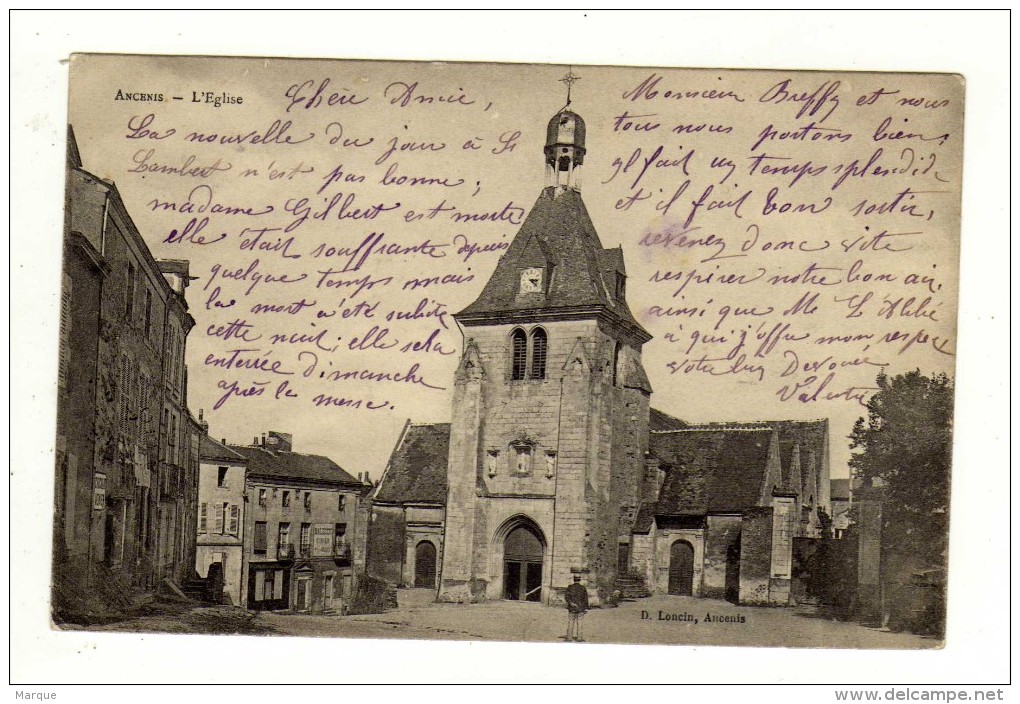 ANCENIS — L'Eglise
Chère Amie,
La nouvelle du jour à St
Lambert n'est pas bonne ;
madame Gilbert est morte
elle était souffrante depuis
quelque temps mais
la mort a été subite
cette nuit ; elle sera
enterrée Dimanche
après la messe.
Monsieur Breffy et nous
tous nous portons bien,
il fait un temps splendide
et il fait bon sortir,
revenez donc vite
respirer notre bon air,
ainsi que Me L'
à qui j'offre mon respect
votre bien Dévouée
Valentine
D. Loncin, Ancenis
Marque
www.delcampe.net